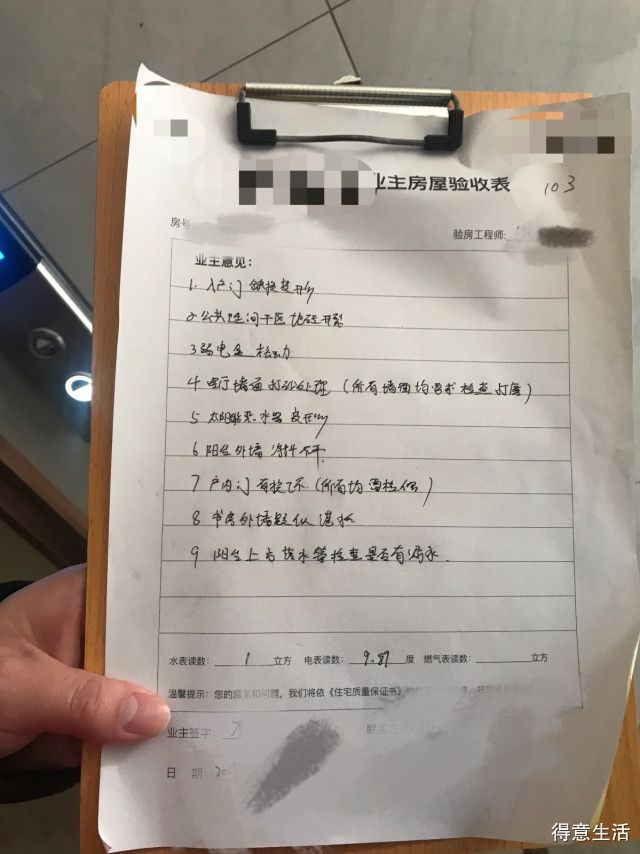 业主房屋验收表 103
房号
验房工程师:
业主意见:
1. 入户门 变形
2 公共卫生间干区 地砖开裂
3 弱电盒 松动
4 客厅墙面打砂处理 (所有墙面均要求检查打磨)
5 太阳能热水器变形
6 阳台外墙 不平
7 户内门有损坏 (所有均需检修)
8 书房外墙疑似渗水
9 阳台上方落水管检查是否有漏水.
水表读数: 1 立方 电表读数: 9.87 度 燃气表读数: 立方
温馨提示: 您的意见和问题, 我们将依《住宅质量保证书》
业主签字:
日 期: 20
得意生活